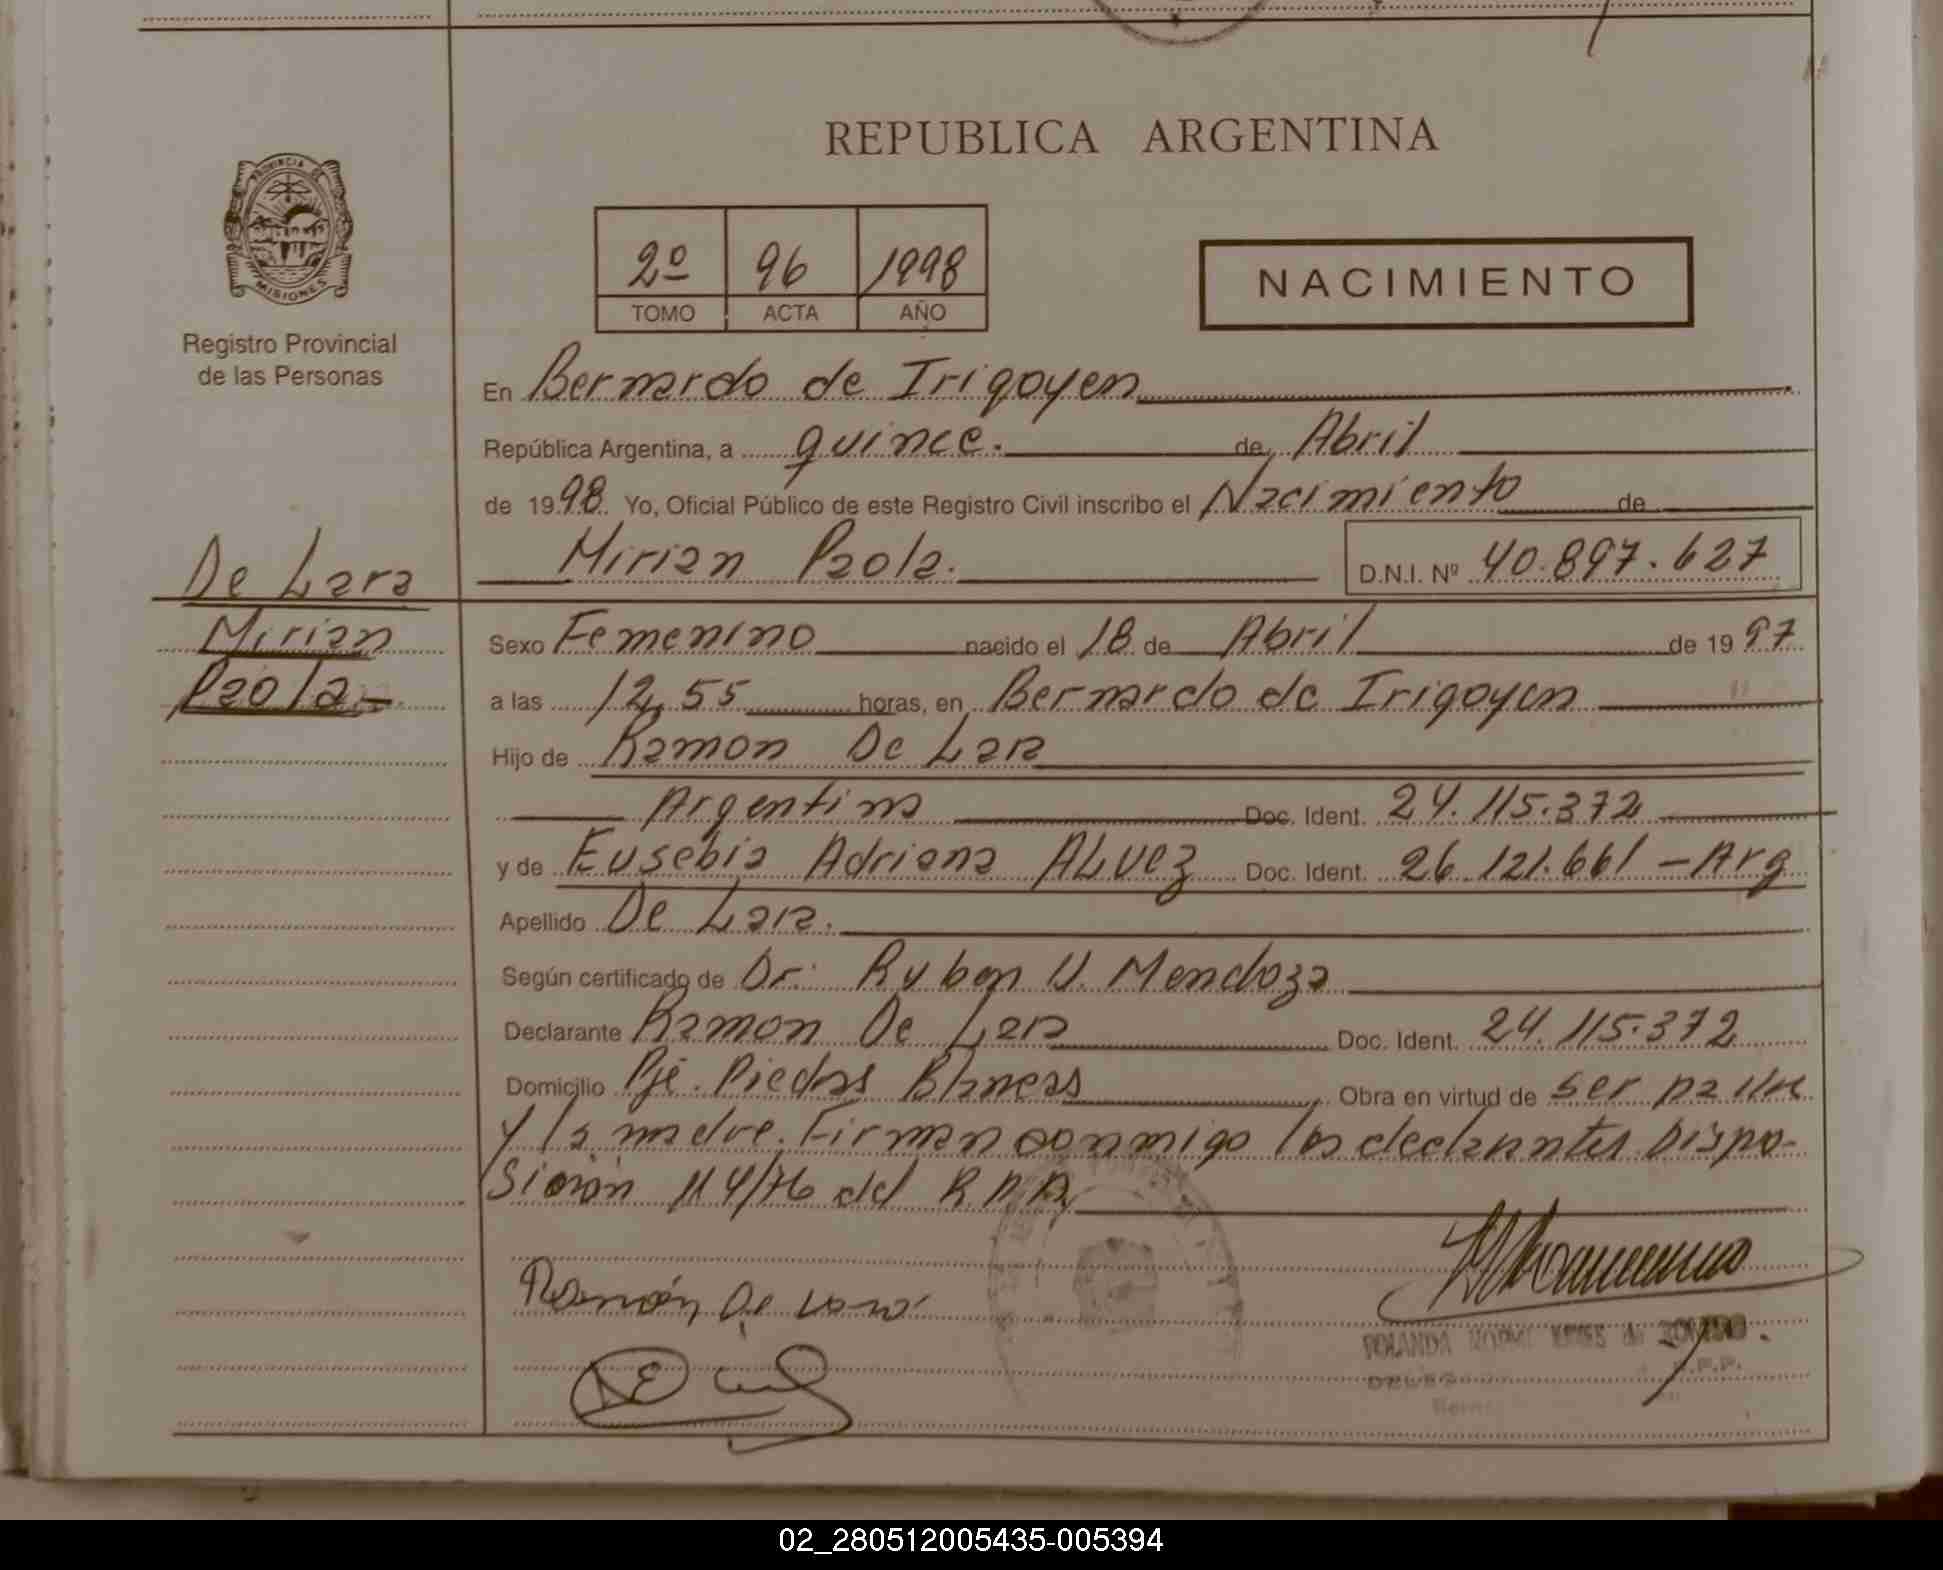 REPUBLICA ARGENTINA
PROVINCIA DE
MISIONES
Registro Provincial
de las Personas
2º 96 1998
TOMO ACTA AÑO
NACIMIENTO
En Bernardo de Irigoyen
República Argentina, a quince. de Abril
de 1998 Yo, Oficial Público de este Registro Civil inscribo el Nacimiento de
Mirian Paola. D.N.I. Nº 40.897.627
De Lara
Mirian
Paola-
Sexo Femenino nacido el 18 de Abril de 1997
a las 12,55 horas, en Bernardo de Irigoyen
Hijo de Ramon De Lara
Argentina Doc. Ident. 24.115.372
y de Eusebia Adriana ALVEZ Doc. Ident. 26.121.661 - Arg
Apellido De Lara.
Según certificado de Dr: Ruben U. Mendoza
Declarante Ramon De Lara Doc. Ident. 24.115.372
Domicilio Pje. Piedras Blancas Obra en virtud de ser padre
y la madre. Firman conmigo los declarantes Dispo-
sición 114/76 del R.P.P.
Ramón De Lara
YOLANDA
02_280512005435-005394